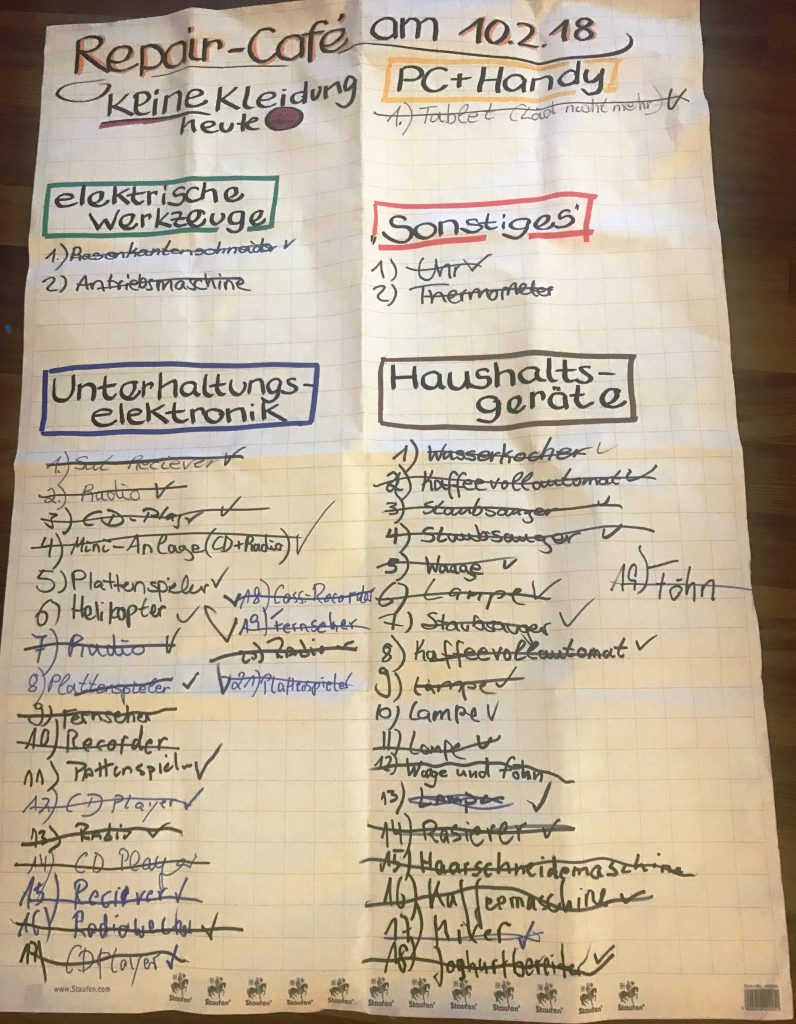 Repair-Café am 10.2.18
Keine Kleidung
heute
PC+Handy
1.) Tablet (Läd nicht mehr)
elektrische
Werkzeuge
1.) Rasenkantenschneider
2) Antriebsmaschine
"Sonstiges"
1) Uhr
2) Thermometer
Unterhaltungs-
elektronik
1.) Sat Reciever
2.) Radio
3) CD-Player
4) Mini-Anlage (CD+Radio)
5) Plattenspieler
6) Helikopter
7) Radio
8) Plattenspieler
9) Fernseher
10) Recorder
11) Plattenspiel-
12) CD Player
13) Radio
14) CD Player
15) Reciever
16) Radiowecker
17) CD Player
18) Cass-Recorder
19) Fernseher
20) Radio
21) Plattenspieler
Haushalts-
geräte
1) Wasserkocher
2) Kaffeevollautomat
3) Staubsauger
4) Staubsauger
5) Waage
6) Lampe
7) Staubsauger
8) Kaffeevollautomat
9) Lampe
10) Lampe
11) Lampe
12) Waage und Föhn
13) Lampe
14) Rasierer
15) Haarschneidemaschine
16) Kaffeemaschine
17) Mixer
18) Joghurtbereiter
19) Föhn
www.Staufen.com
Staufen Staufen Staufen Staufen Staufen Staufen Staufen Staufen Staufen Staufen Staufen